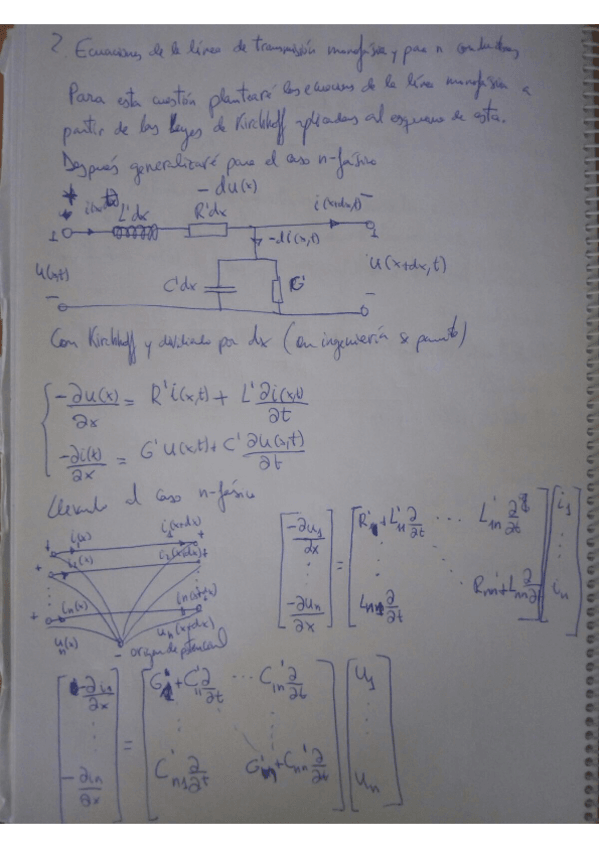 2. Ecuaciones de la línea de transmisión monofásica y para n conductores
Para esta cuestión plantearé las ecuaciones de la línea monofásica a
partir de las leyes de Kirchhoff aplicadas al esquema de esta.
Después generalizaré para el caso n-fásico
- du(x)
L'dx R'dx i(x+dx,t) -
1 -di(x,t) 1
u(x,t) C'dx G' u(x+dx,t)
- -
Con Kirchhoff y dividiendo por dx (en ingeniería se puede)
-∂u(x)/∂x = R'i(x,t) + L'∂i(x,t)/∂t
-∂i(x)/∂x = G'u(x,t) + C'∂u(x,t)/∂t
Llevando al caso n-fásico
i₁(x) i₁(x+dx) +
+ i₂(x) i₂(x+dx) +
+ in(x) in(x+dx) +
un(x) un(x+dx)
- origen de potencial
[-∂u₁/∂x ⋮ -∂un/∂x] = [R'₁+L'₁₁∂/∂t ⋯ L'₁n∂/∂t ⋮ Ln₁∂/∂t Rnn'+Lnn∂/∂t] [i₁ ⋮ in]
[-∂i₁/∂x ⋮ -∂in/∂x] = [G'₁+C'₁₁∂/∂t ⋯ C'₁n∂/∂t ⋮ C'n₁∂/∂t G'n+Cnn'∂/∂t] [u₁ ⋮ un]